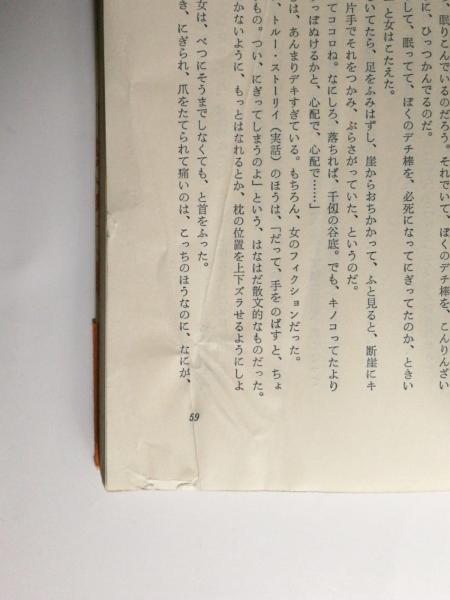 、眠りこんでいるのだろう。それでいて、ぼくのデチ棒を、こんりんざい
に、ひっつかんでるのだ。
して、眠ってて、ぼくのデチ棒を、必死になってにぎってたのか、ときい
と女はこたえた。
いてたら、足をふみはずし、崖からおちかかって、ふと見ると、断崖にキ
片手でそれをつかみ、ぶらさがっていた、というのだ。
てココロね。なにしろ、落ちれば、千仭の谷底。でも、キノコってたより
っぽぬけるかと、心配で、心配で……」
は、あんまりデキすぎている。もちろん、女のフィクションだった。
、トルー・ストーリイ（実話）のほうは、「だって、手をのばすと、ちょ
もの。つい、にぎってしまうのよ」という、はなはだ散文的なものだった。
かないように、もっとはなれるとか、枕の位置を上下ズラせるようにしよ
女は、べつにそうまでしなくても、と首をふった。
き、にぎられ、爪をたてられて痛いのは、こっちのほうなのに、なにが、
59